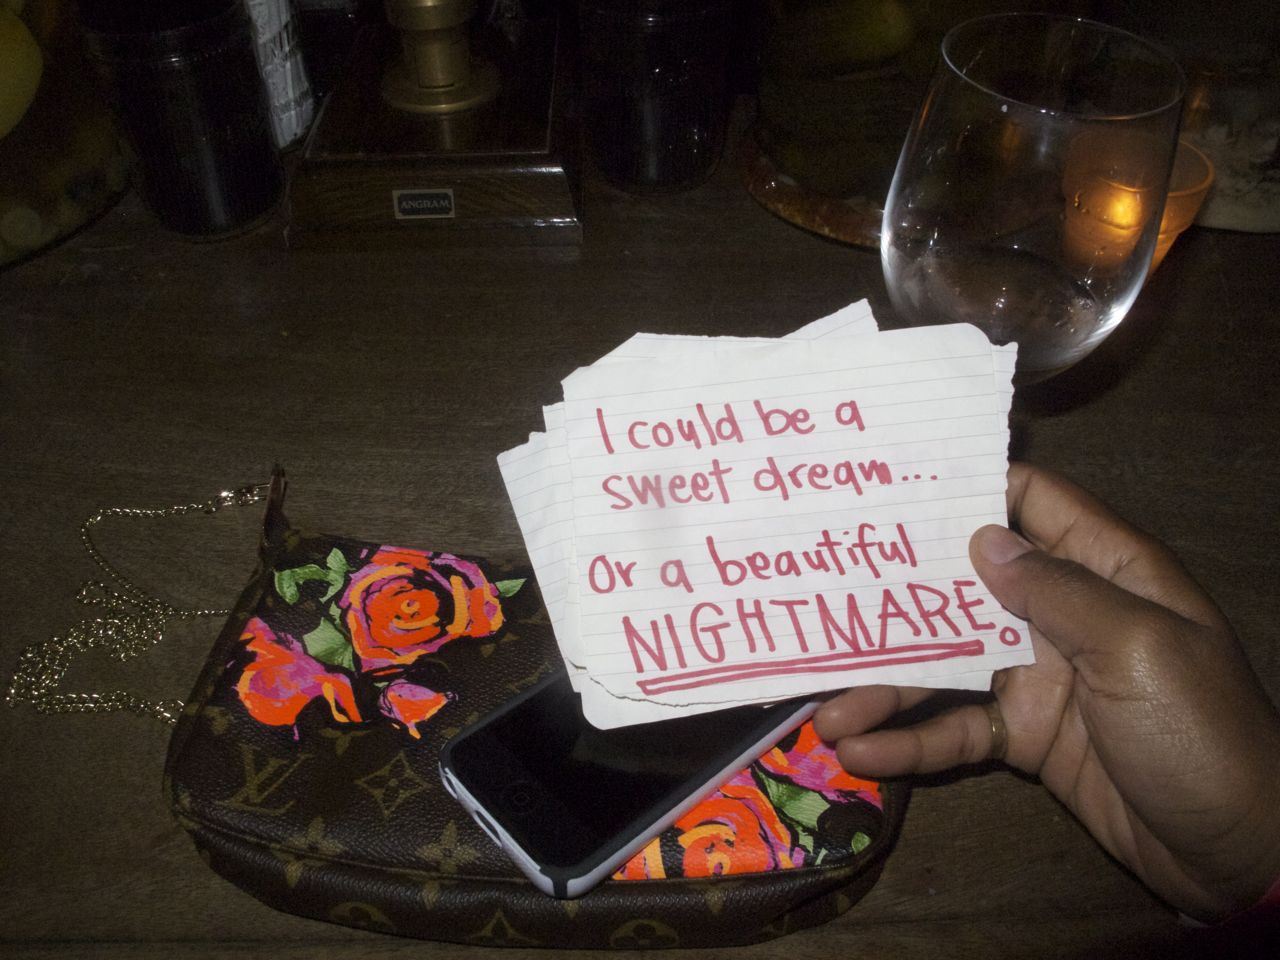 ANGRAM
I could be a
sweet dream...
Or a beautiful
NIGHTMARE.
LV